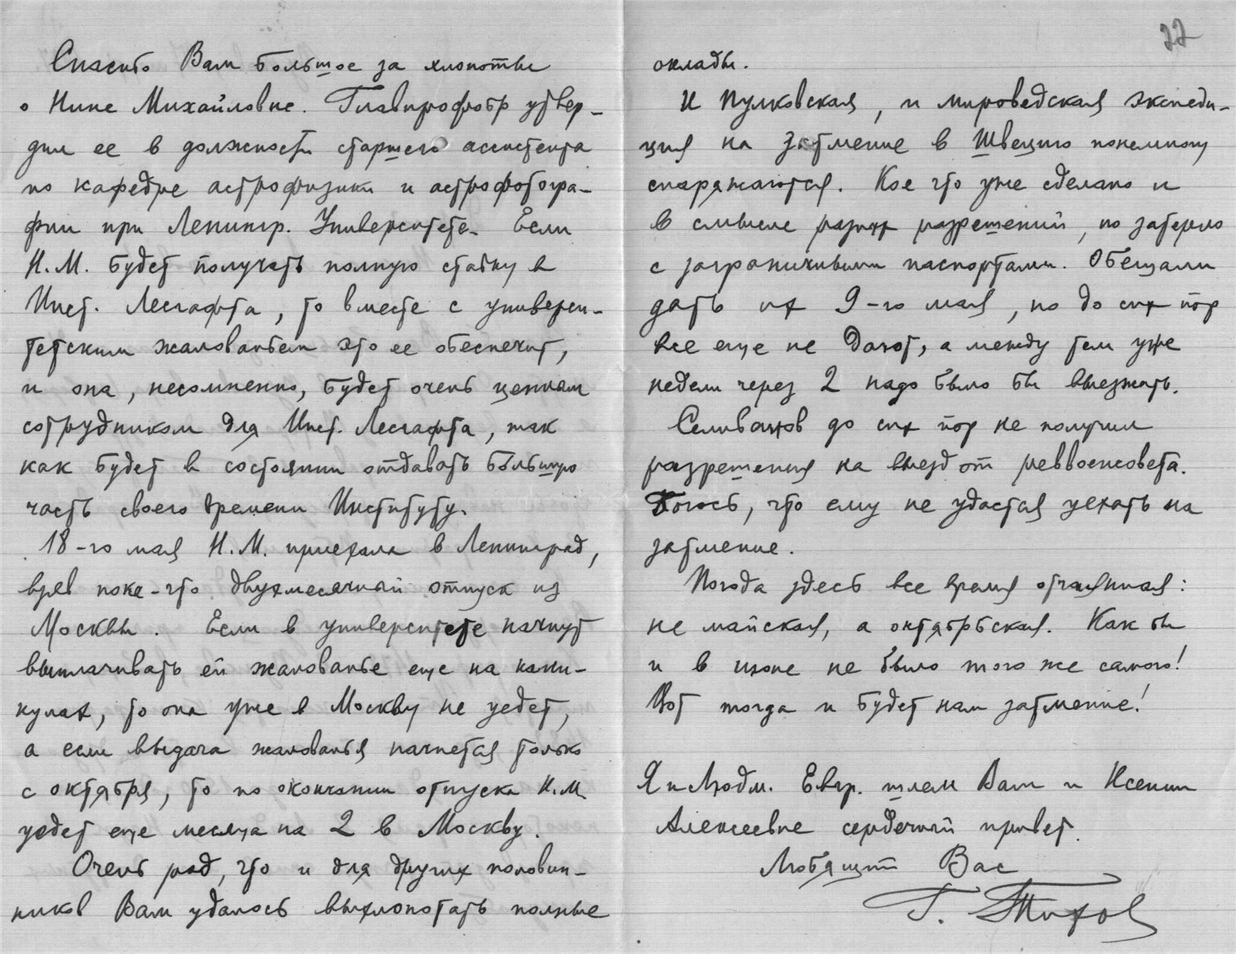 Спасибо Вам большое за хлопоты
о Нине Михайловне. Главпрофобр утвер-
дил ее в должности старшего ассистента
по кафедре астрофизики и астрофотогра-
фии при Ленингр. Университете. Если
Н.М. будет получать полную ставку в
Инст. Лесгафта, то вместе с универси-
тетским жалованьем это ее обеспечит,
и она, несомненно, будет очень ценным
сотрудником для Инст. Лесгафта, так
как будет в состоянии отдавать большую
часть своего времени Институту.
18-го мая Н.М. приехала в Ленинград,
взяв пока-что двухмесячный отпуск из
Москвы. Если в университете начнут
выплачивать ей жалованье еще на кани-
кулах, то она уже в Москву не уедет,
а если выдача жалованья начнется только
с октября, то по окончании отпуска Н.М.
уедет еще месяца на 2 в Москву.
Очень рад, что и для других половин-
ников Вам удалось выхлопотать полные
22
оклады.
И Пулковская, и мироведская экспеди-
ция на затмение в Швецию понемногу
снаряжаются. Кое что уже сделано и
в смысле разных разрешений, но затерло
с заграничными паспортами. Обещали
дать их 9-го мая, но до сих пор
все еще не дают, а между тем уже
недели через 2 надо было бы выезжать.
Селиванов до сих пор не получил
разрешения на выезд от реввоенсовета.
Боюсь, что ему не удастся уехать на
затмение.
Погода здесь все время отчаянная:
не майская, а октябрьская. Как бы
и в июне не было того же самого!
Вот тогда и будет нам затмение!
Я и Людм. Евгр. шлем Вам и Ксении
Алексеевне сердечный привет.
Любящий Вас
Г. Тихов